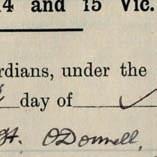 14 and 15 Vic.
rdians, under the
day of
H. O'Donnell,